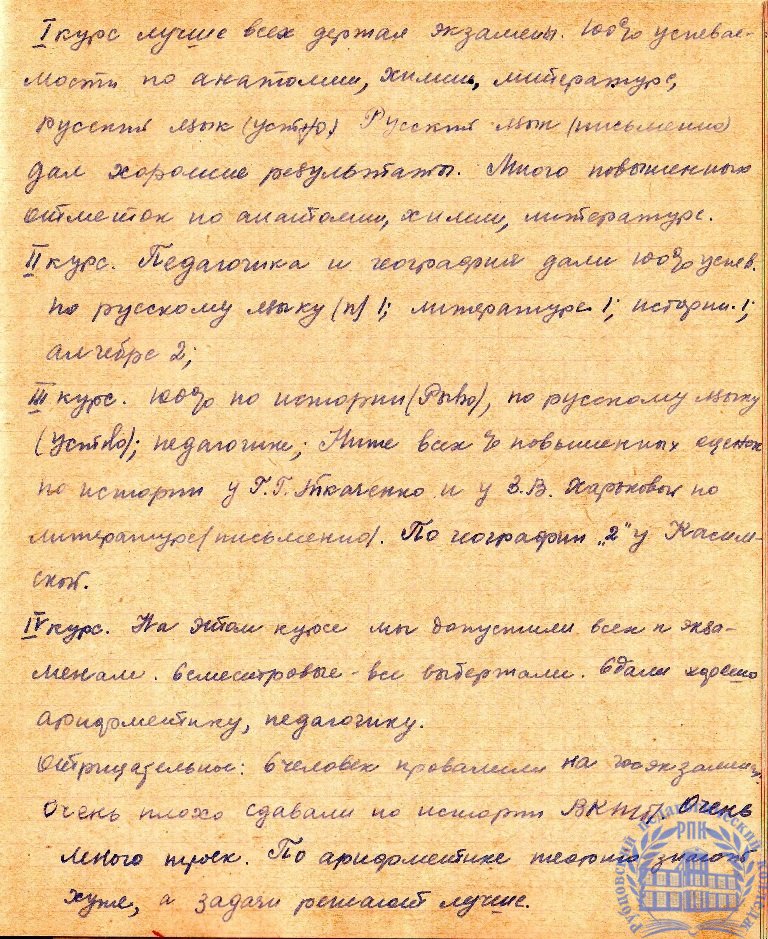 I курс лучше всех держал экзамены. 100% успевае-
мости по анатомии, химии, литературе,
русский язык (устно) Русский язык (письменно)
дал хорошие результаты. Много повышенных
отметок по анатомии, химии, литературе.
II курс. Педагогика и география дали 100% успев.
по русскому языку (п) 1; литературе 1; истории 1;
алгебре 2;
III курс. 100% по истории (Рыво), по русскому языку
(устно); педагогике; Ниже всех % повышенных оценок
по истории у Г.Г. Ткаченко и у З.В. Харьковой по
литературе (письменно). По географии „2" у Касим-
ской.
IV курс. На этом курсе мы допустили всех к экза-
менам. Семестровые - все выдержали. Сдали хорошо
арифметику, педагогику.
Отрицательное: 6 человек провалили на госэкзамен.
Очень плохо сдавали по истории ВКП(б) Очень
много троек. По арифметике теорию знают
хуже, а задачи решают лучше.
РПК
Рубцовский педагогический колледж